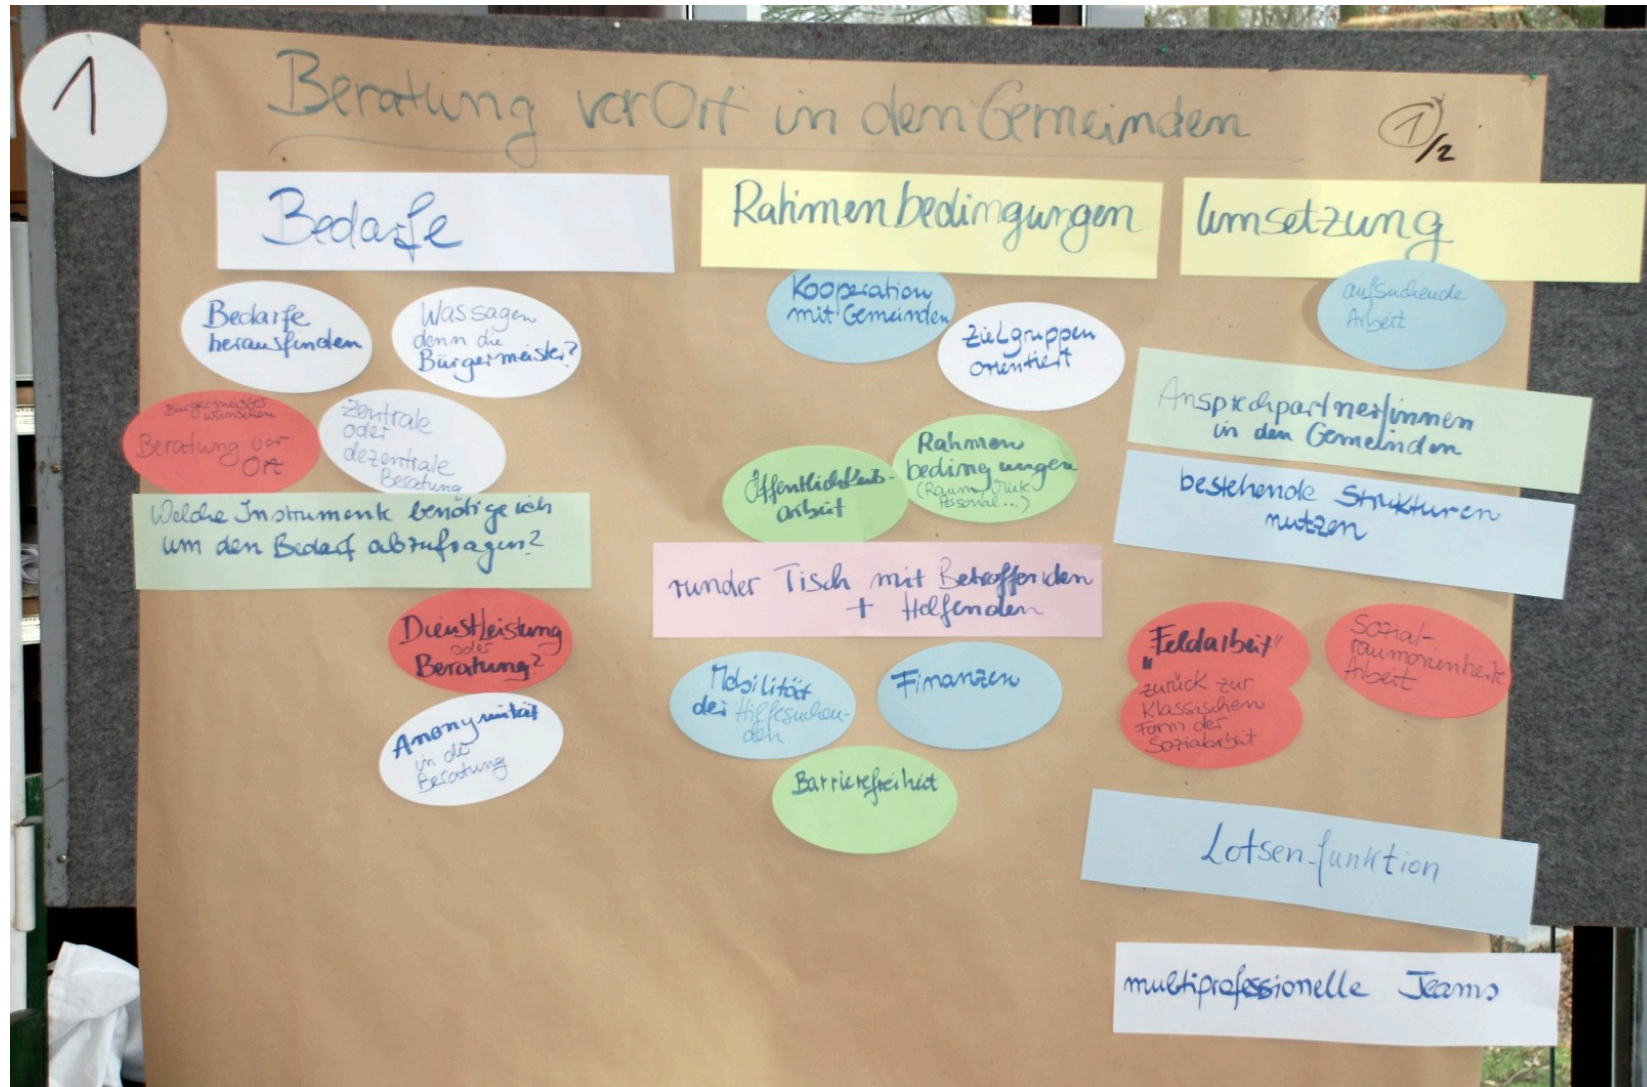 1
Beratung vor Ort in den Gemeinden
1/2
Bedarfe
Bedarfe
herausfinden
Was sagen
denn die
Bürgermeister?
Bürgermeister
wünschen
Beratung vor
Ort
zentrale
oder
dezentrale
Beratung
Welche Instrumente benötige ich
um den Bedarf abzufragen?
Dienstleistung
oder
Beratung?
Anonymität
in der
Beratung
Rahmenbedingungen
Kooperation
mit Gemeinden
Zielgruppen
orientiert
Öffentlichkeits-
arbeit
Rahmen
bedingungen
(Raum,
Personal...)
runder Tisch mit Betroffenden
+ Helfenden
Mobilität
der Hilfesuchen-
den
Finanzen
Barrierefreiheit
Umsetzung
aufsuchende
Arbeit
Ansprechpartner/innen
in den Gemeinden
bestehende Strukturen
nutzen
"Feldarbeit"
zurück zur
klassischen
Form der
Sozialarbeit
Sozial-
raumorientierte
Arbeit
Lotsenfunktion
multiprofessionelle Teams